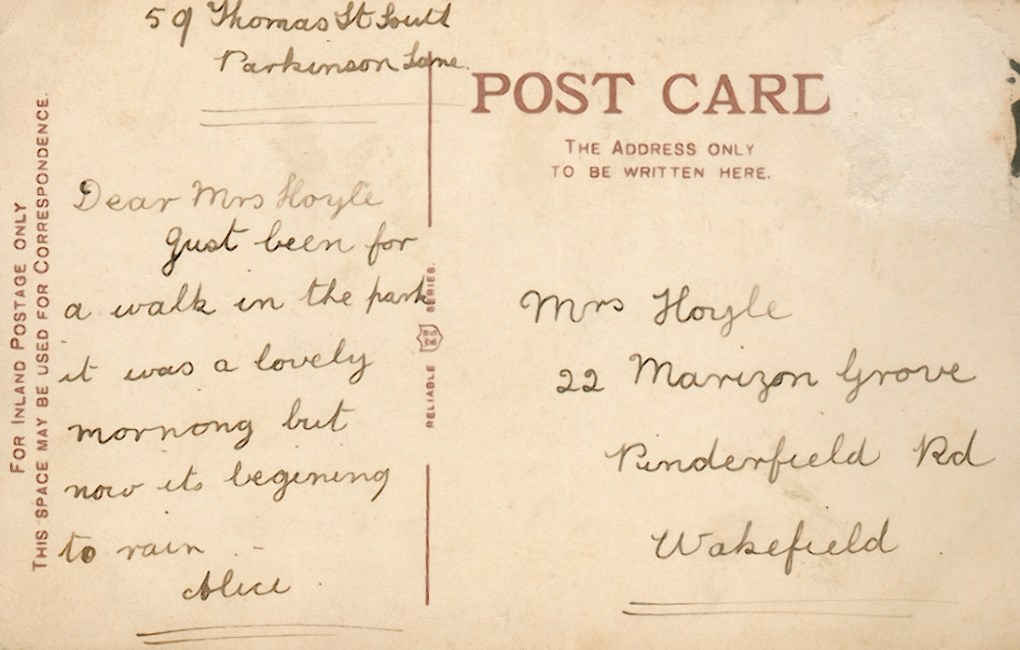 59 Thomas St South
Parkinson Lane.
Dear Mrs Hoyle
Just been for
a walk in the park
it was a lovely
mornong but
now its begining
to rain
Alice
FOR INLAND POSTAGE ONLY
THIS SPACE MAY BE USED FOR CORRESPONDENCE.
RELIABLE SERIES.
POST CARD
THE ADDRESS ONLY
TO BE WRITTEN HERE.
Mrs Hoyle
22 Marizon Grove
Pinderfield Rd
Wakefield